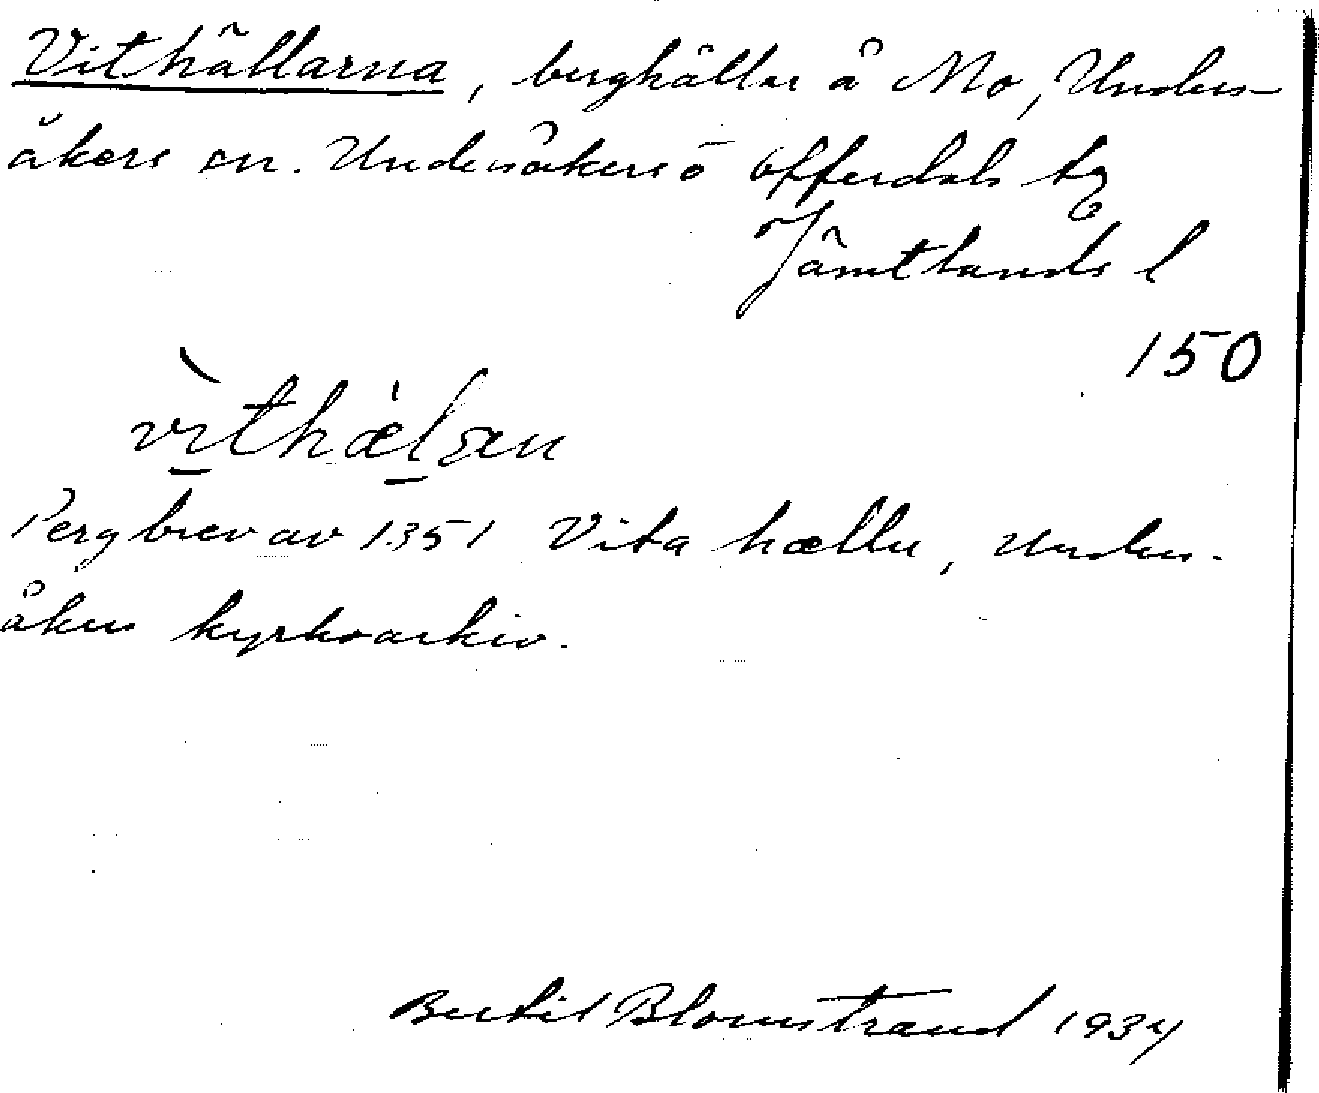 Vithällarna, berghällar å Mo, Unders-
åkers sn. Undersåkers o Offerdals tg
Jämtlands l
150
vìthæ̀lɜen
Perg brev av 1351 Vita hællu, Unders-
åkers kyrkoarkiv.
Bertil Blomstrand 1934